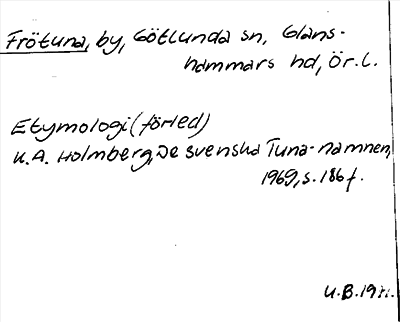 Frötuna, by, Götlunda sn, Glans-
hammars hd, Ör.l.
Etymologi (förled)
K.A. Holmberg, De svenska Tuna-namnen,
1969, s. 186 f.
U.B. 1971.